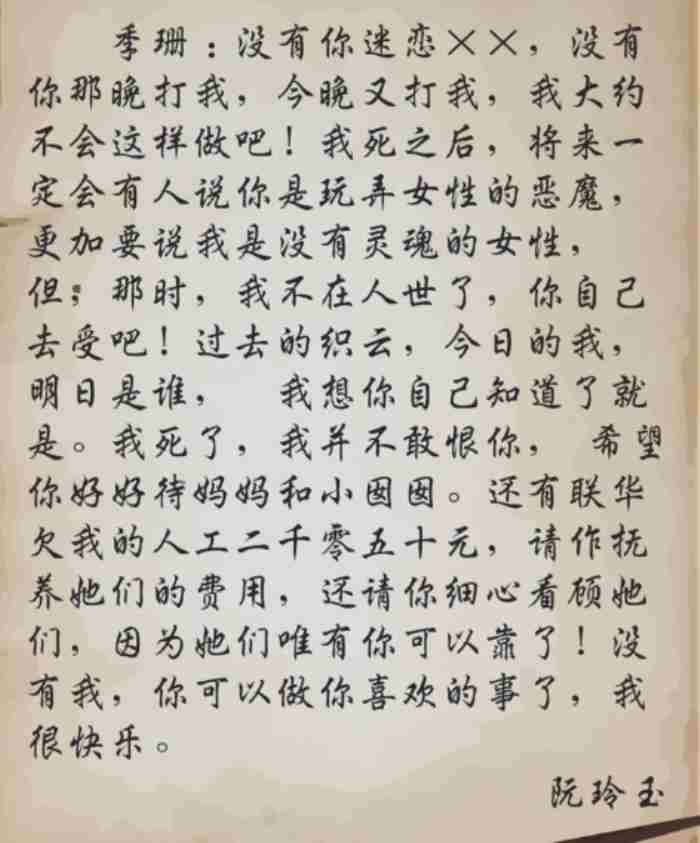 季珊：没有你迷恋××，没有
你那晚打我，今晚又打我，我大约
不会这样做吧！我死之后，将来一
定会有人说你是玩弄女性的恶魔，
更加要说我是没有灵魂的女性，
但；那时，我不在人世了，你自己
去受吧！过去的织云，今日的我，
明日是谁， 我想你自己知道了就
是。我死了，我并不敢恨你， 希望
你好好待妈妈和小囡囡。还有联华
欠我的人工二千零五十元，请作抚
养她们的费用，还请你细心看顾她
们，因为她们唯有你可以靠了！没
有我，你可以做你喜欢的事了，我
很快乐。
阮玲玉